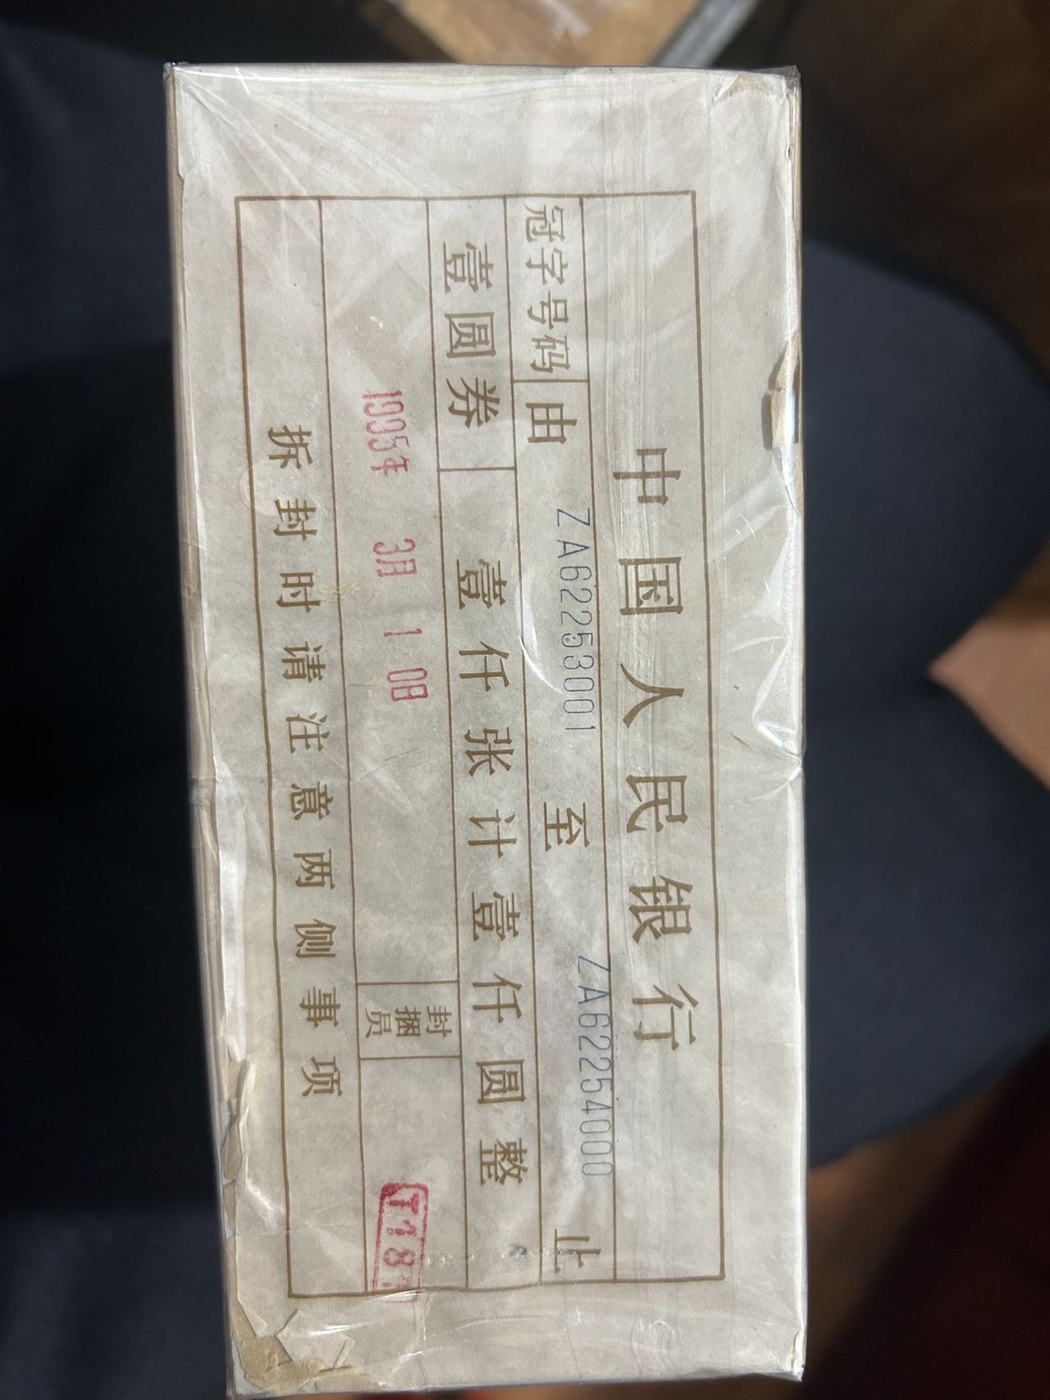 中国人民银行
冠字号码 由 ZA62253001 至 ZA62254000 止
壹圆券 壹仟张计壹仟圆整
1995年 3月 10日 封捆员
拆封时请注意两侧事项